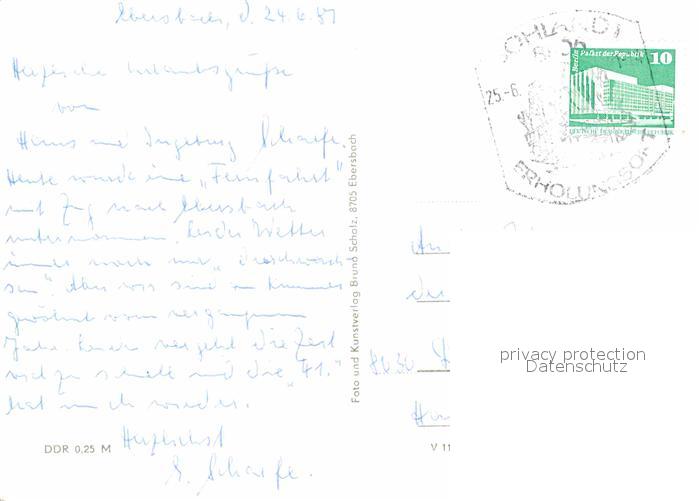 Ebersbach, d. 24.6.81
Herzliche Urlaubsgrüße
von
Hans und Ingeburg Schaefe.
Heute wurde eine "Fernfahrt"
mit Zug nach Ebersbach
unternommen. Leider Wetter
immer noch mit
sen". Aber wir sind
gewöhnt vom vergangenen
Jahr. Leider vergeht die Zeit
viel zu schnell und die "41."
hat mich wieder.
Herzlichst
Schaefe.
DDR 0,25 M
Foto und Kunstverlag Bruno Scholz, 8705 Ebersbach
V 11
OHLAND
25.-6.
ERHOLUNGSORT
Berlin Palast der Republik 10
DEUTSCHE DEMOKRATISCHE REPUBLIK
An
8030
privacy protection
Datenschutz